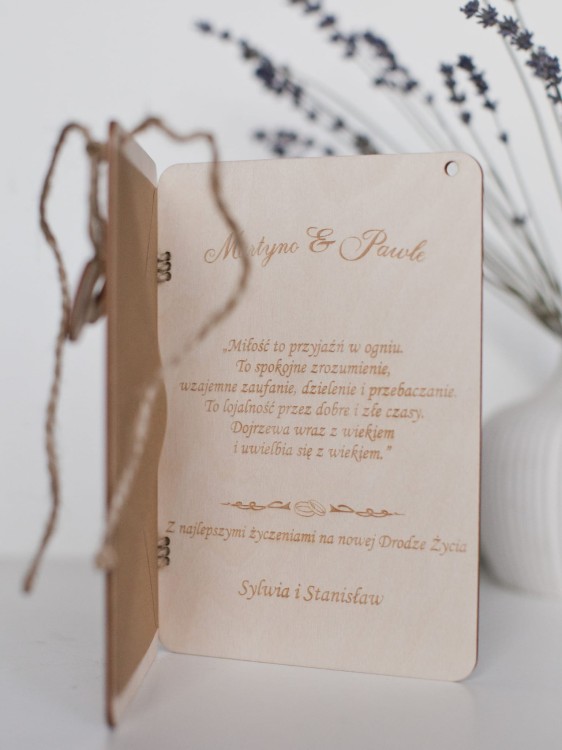 Martyno & Pawle
„Miłość to przyjaźń w ogniu.
To spokojne zrozumienie,
wzajemne zaufanie, dzielenie i przebaczanie.
To lojalność przez dobre i złe czasy.
Dojrzewa wraz z wiekiem
i uwielbia się z wiekiem."
Z najlepszymi życzeniami na nowej Drodze Życia
Sylwia i Stanisław